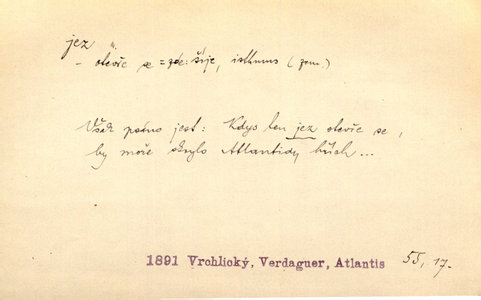 jez
- otevře se = zde: šíje, isthmus (zem.)
Však psáno jest: Kdys ten jez otevře se,
by moře skrylo Atlantidy hřích ...
1891 Vrchlický, Verdaguer, Atlantis 55, 17.